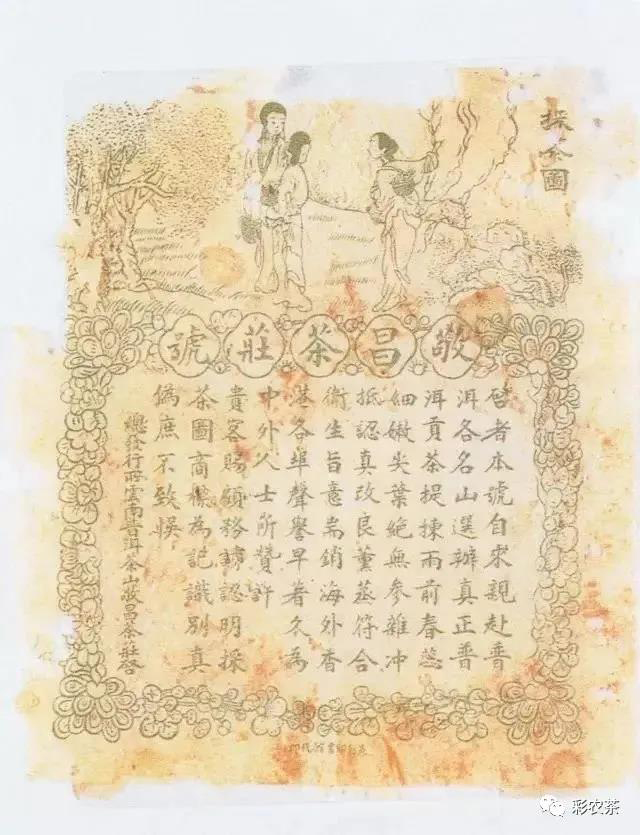 採茶圖
敬昌茶莊號
啓者本號自來親赴普
洱各名山選辦真正普
洱貢茶提揀雨前春蕊
細嫩尖葉絕無參雜冲
抵認真改良薰蒸符合
衛生旨意耑銷海外香
港各埠聲譽早著久為
中外人士所贊許
貴客賜顧務請認明採
茶圖商標為記識別真
偽庶不致悞
總發行所雲南普洱茶山敬昌茶莊啓
彩农茶